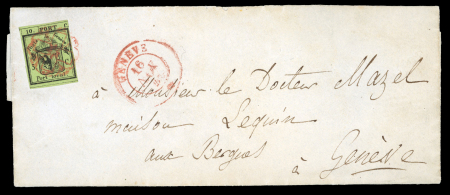 10 PORT C.
Port local
GENÈVE
16
à Monsieur le Docteur Mazel
maison Lequin
aux Bergues
à Genève